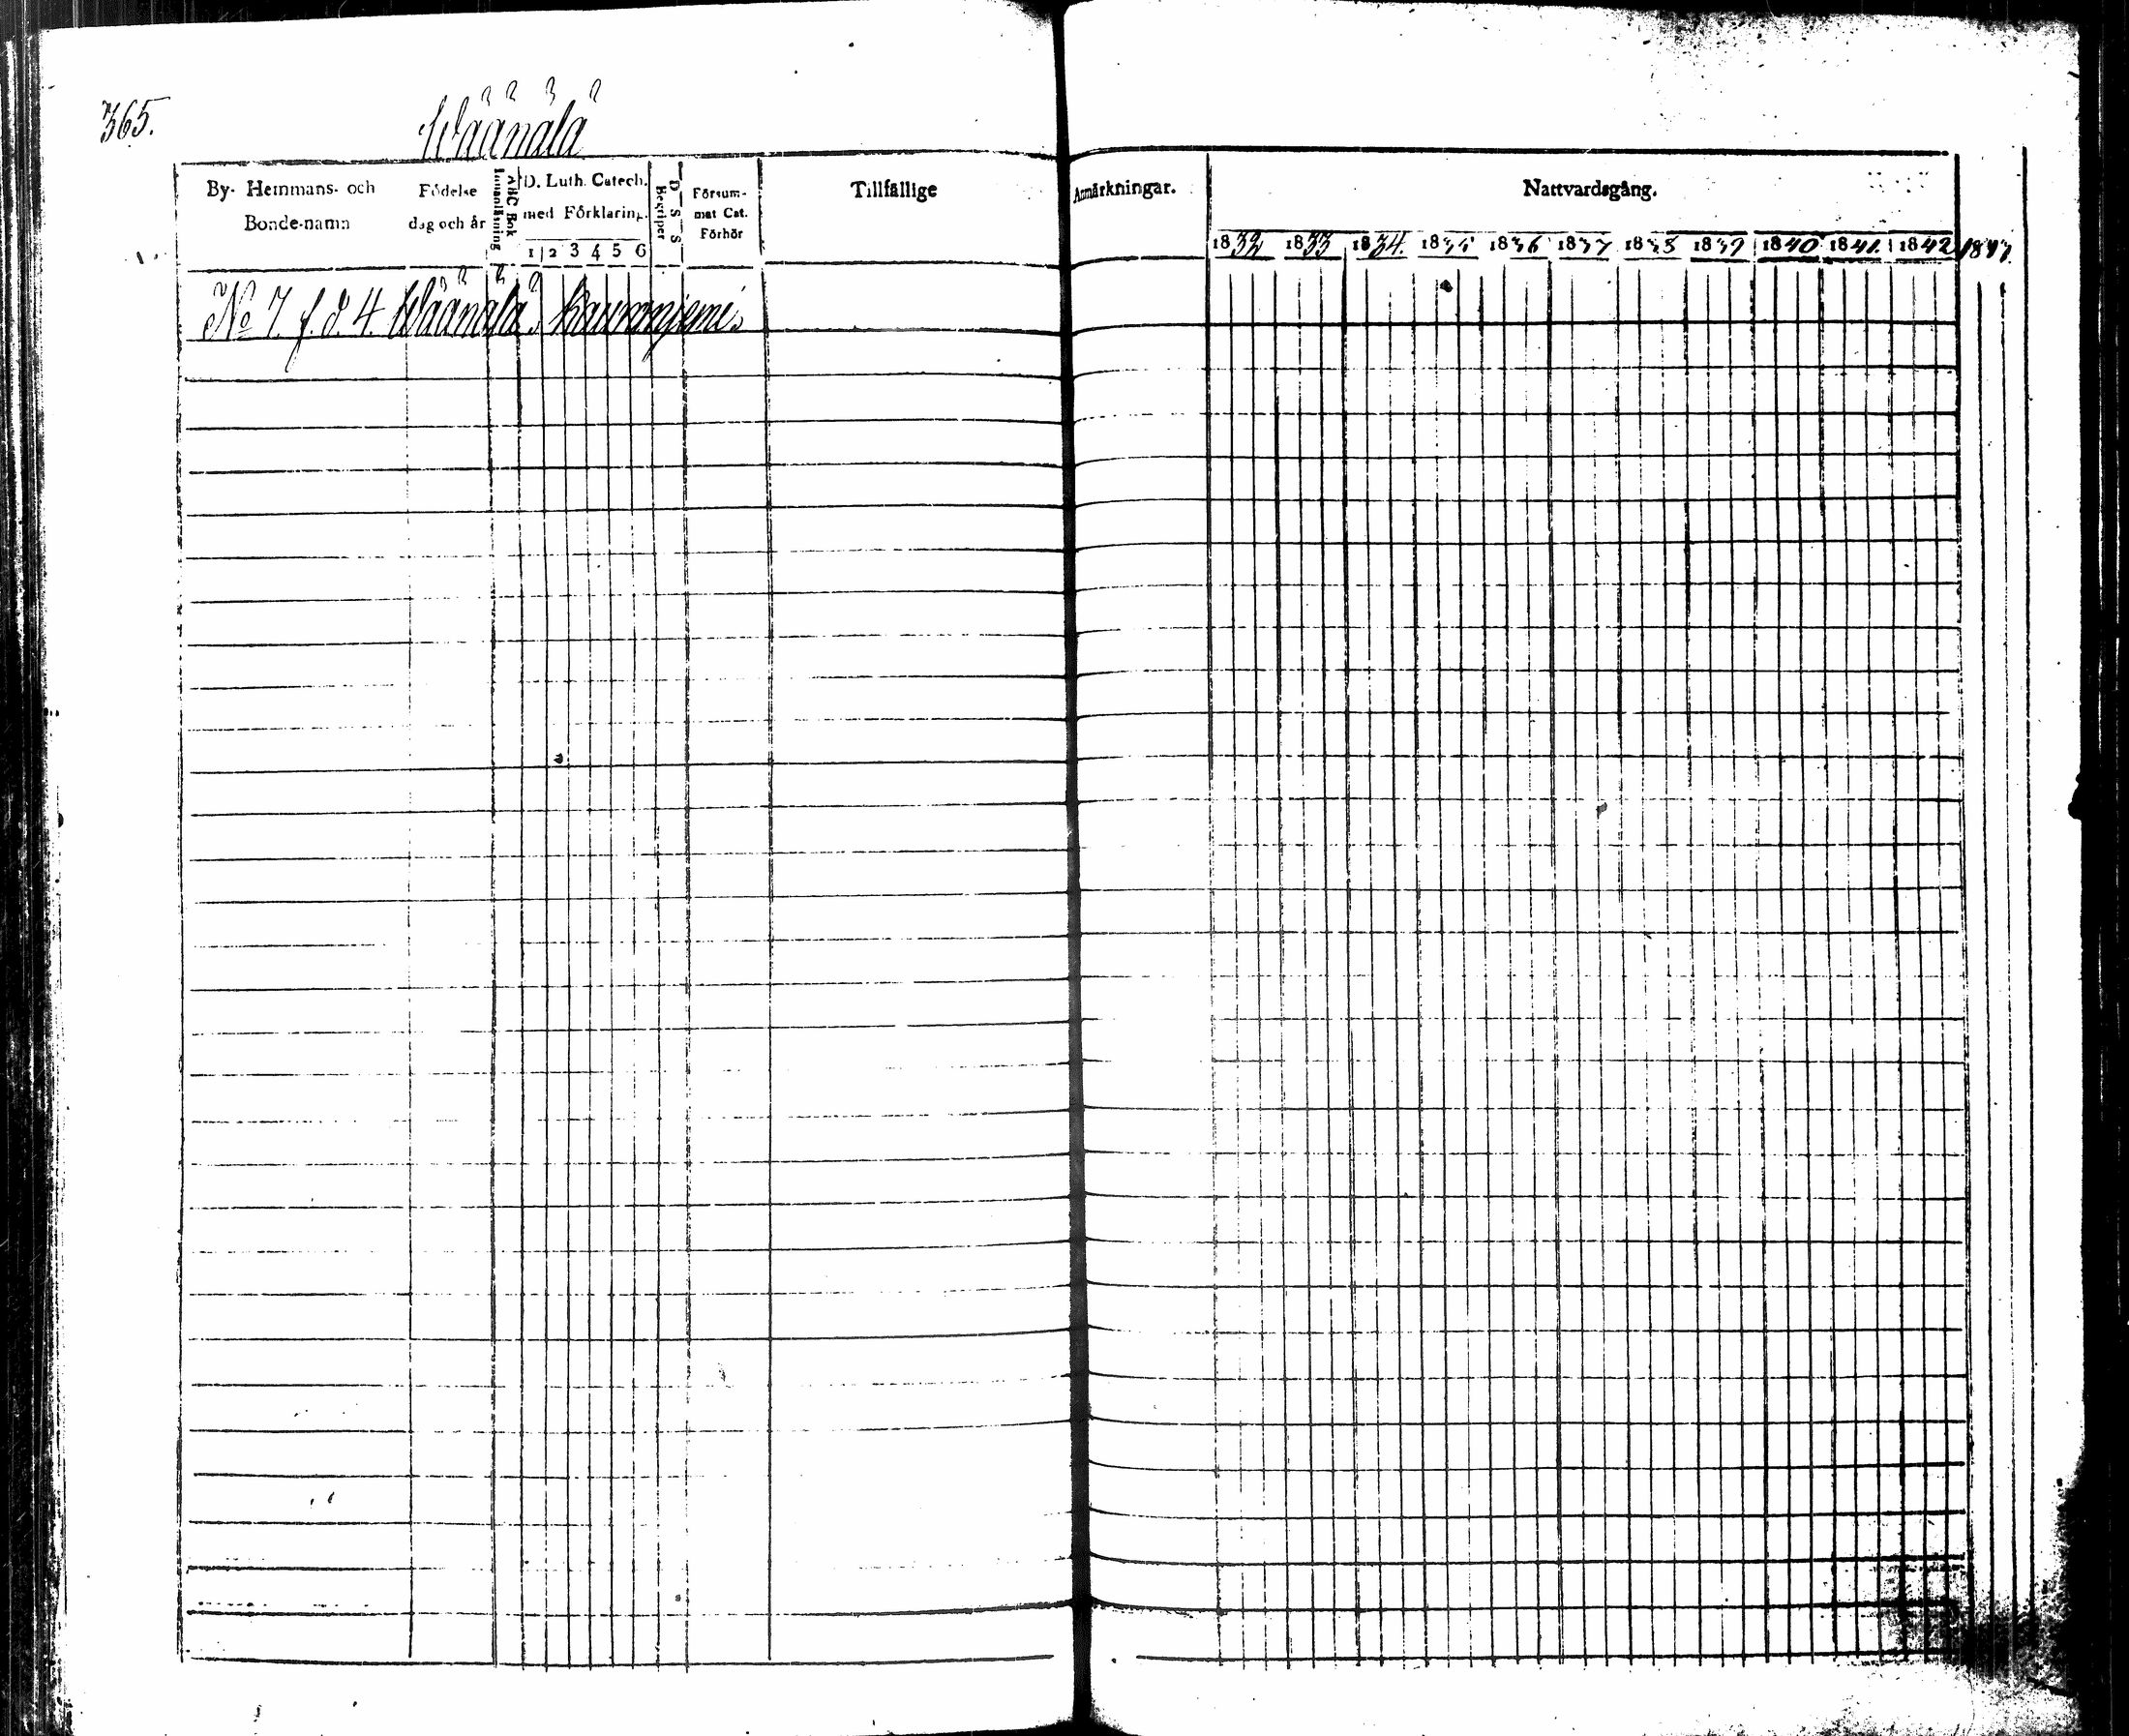 365.
Wäänälä
By- Hemmans- och
Bonde-namn
Födelse
dag och år
ABC Bok
Innanläsning
D. Luth. Catech.
med Förklaring.
1 2 3 4 5 6
D S S
Begriper
Försum-
mat Cat.
Förhör
Tillfällige
Anmärkningar.
Nattvardsgång.
1832 1833 1834. 1835 1836 1837 1838 1839 1840 1841 1842 1843.
No 7. f. d. 4. Wäänälä,